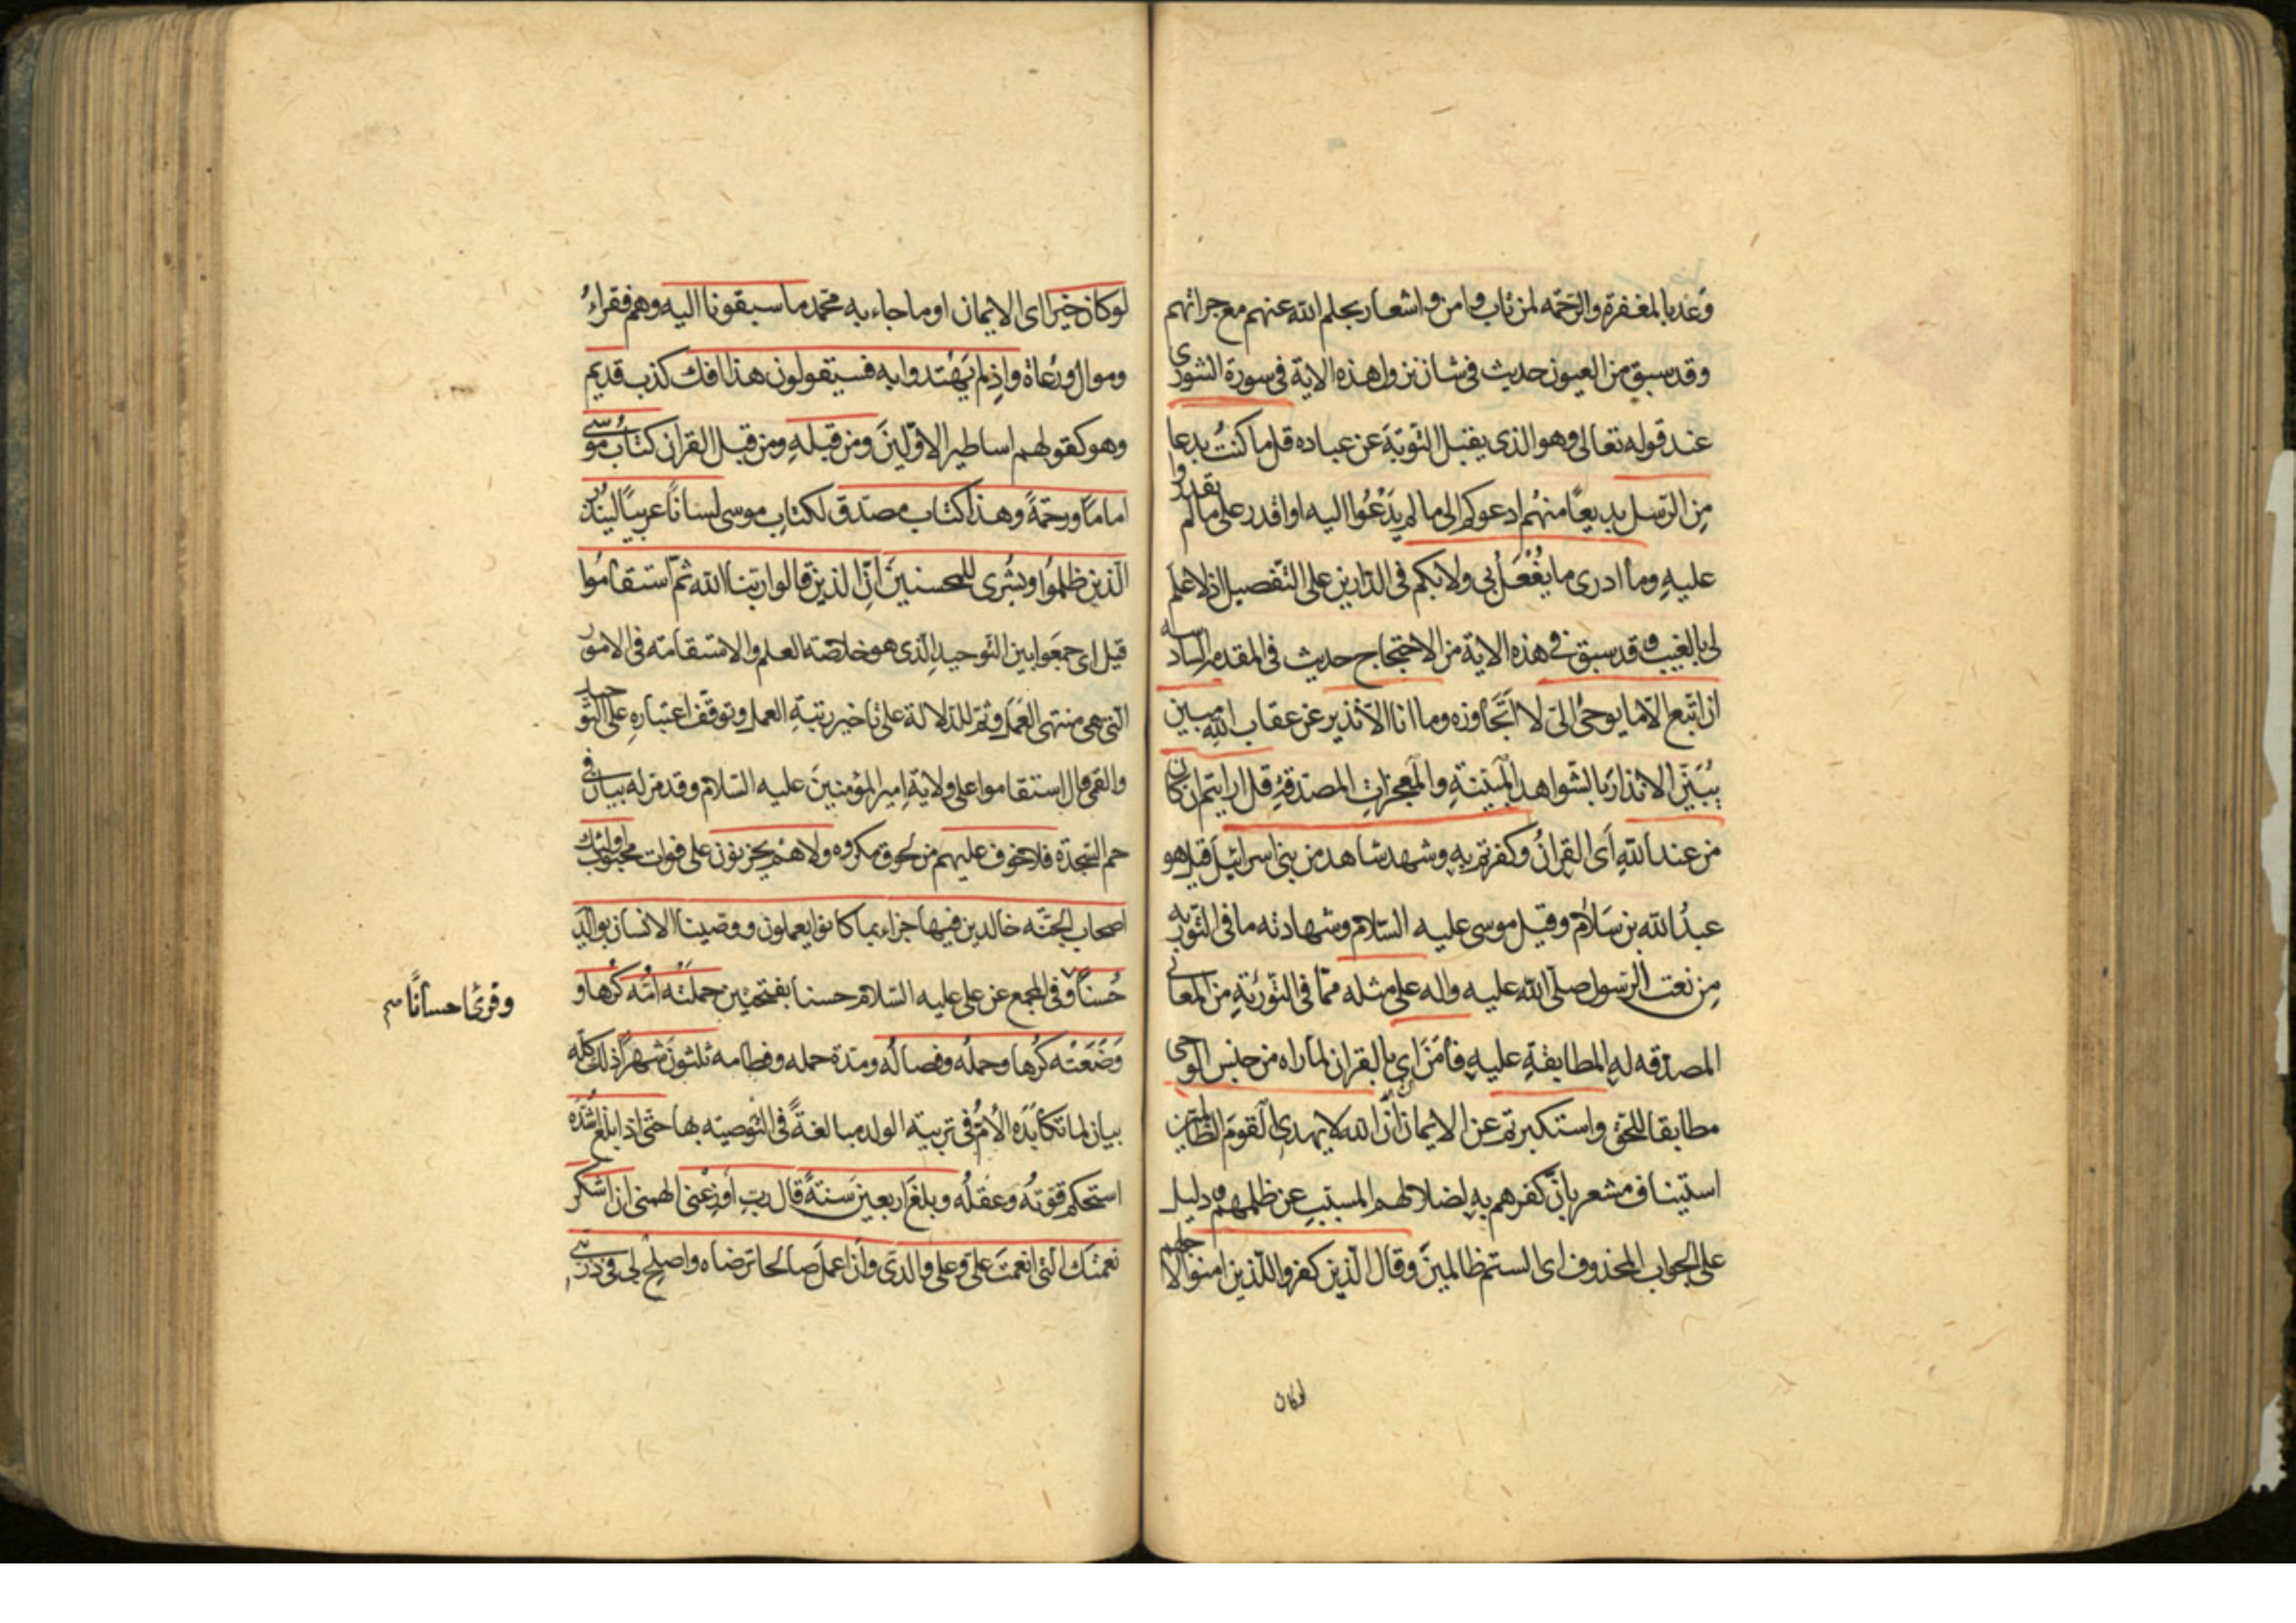 وعد بالمغفرة والرّحمه لمن تاب وامن واشعار بحلم الله عنهم مع جراتهم
وقد سبق من العيون حديث فى شان نزول هذه الاية فى سورة الشورى
عند قوله تعالى وهو الذى يقبل التّوبَة عن عباده قل ما كنتُ بدعا
مِن الرّسل بديعًا منهُم ادعوكم الى ما لم يَدْعُوا اليه او اقدر على ما لم يقدروا
عليهِ وما ادرى ما يُفْعَلُ بى ولا بكم فى الدّارين على التّفصيل اذ لا علم
لى بالغيب وقد سبق فى هذه الاية من الاحتجاج حديث فى المقدمة السادسه
ان اتّبع الّا ما يوحىٰ الىّ لا اتَجاوزه وما انا الّا نذير عن عقاب اللهِ مبين
يُبَيّن الانذار بالشّواهد المبَيّنةِ والمعجزاتِ المصدّقةِ قل ارايتم ان كان
من عند اللهِ اَى القرانُ وكفرتم بهِ وشهد شاهد من بنى اسرائيل قيل هو
عبدُ الله بن سَلام وقيل موسى عليه السّلام وشهادته ما فى التّورية
مِن نعت الرّسول صلّى الله عليه واله على مثله ممّا فى التّوريٰةِ من المعانى
المصدّقه لهِ المطابقةِ عليهِ فامَنَ اى بالقران لما راه من جنس الوحى
مطابقا للحق واستكبرتم عن الايمان انّ الله لا يهدى القومَ الظالمين
استيناف مشعر بانّ كفرهم بهِ لضلالهم المسبّبِ عن ظلمهم ودليل
على الجواب المحذوف اى الستم ظالمينَ وقال الّذين كفروا للّذين امنوا لاجلهم
لوكان
لوكان خيرا اى الايمان او ما جاء به محمّد ما سبقونا اليه وهم فقراءُ
وموال ورُعاة واذِ لم يَهْتدوا به فسيقولون هذا افك كذب قديم
وهو كقولهم اساطير الاوّلينَ ومن قبلهِ ومن قبل القران كتابُ موسى
امامًا ورحمَةً وهذا كتاب مصدّق لكتابِ موسى لسانًا عربيّا ليُنذِرَ
الّذين ظلمُوا وبشرى للمحسنينَ اِنّ الذين قالوا ربّنا الله ثمّ استقامُوا
قيل اى جمَعوا بين التّوحيدِ الّذى هو خلاصَة العلم والاستقامته فى الامور
الّتى هى منتهى العَمَل وثمّ للدّلالة على تاخير رتبةِ العمل وتوقّف اعتبارهِ على التّوحيد
والقمى قال استقاموا على ولايةِ امير المؤمنينَ عليه السّلام وقد مرّ له بيان فى
حم السّجدة فلا خوف عليهم من لحوق مكروه ولا هُمْ يحزنون على فوات محبوب اولئك
اصحاب الجنّه خالدين فيها جزاء بما كانوا يعملون ووصّينا الانسان بوالديه
حُسنًا وفى المجمع عن على عليه السّلام حسنا بفتحتين حَملَتْه امُّه كرْها و
وقرئ احسانًا
وَضَعَتْه كُرْها وحملُه وفصالُه ومدّة حمله وفطامه ثلٰثونَ شهرًا ذلك كلّه
بيان لما تكابَدَه الاُمّ فى تربية الولد مبالغةً فى التّوصيته بها حتّى اذا بلغ اشُدّه
استحكم قوّتهُ وعَقلُه وبلغَ اربعين سَنةً قال ربِ اَوْزعْنى الهمنى ان اشكر
نعمتك الّتى انعمتَ علىّ وعلى والدىّ وان اعملَ صالحا ترضاه واصلِحْ لى فى ذرّيتى